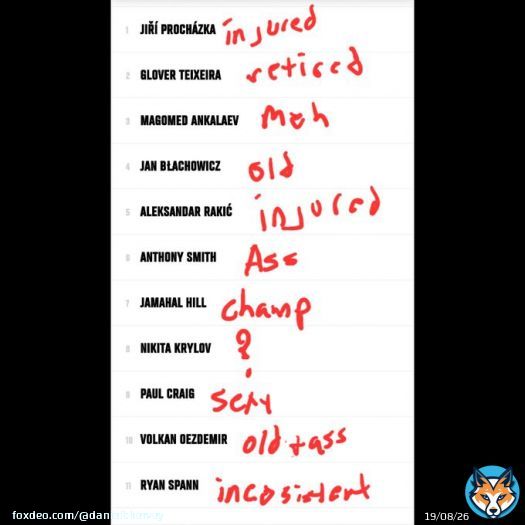 1 JIŘÍ PROCHÁZKA injured
2 GLOVER TEIXEIRA retired
3 MAGOMED ANKALAEV Meh
4 JAN BŁACHOWICZ old
5 ALEKSANDAR RAKIĆ injured
6 ANTHONY SMITH Ass
7 JAMAHAL HILL champ
8 NIKITA KRYLOV ?
9 PAUL CRAIG sexy
10 VOLKAN OEZDEMIR old + ass
11 RYAN SPANN incosistent
19/08/26